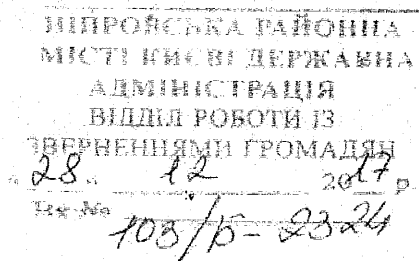 ДНІПРОВСЬКА РАЙОННА
МІСТІ КИЄВІ ДЕРЖАВНА
АДМІНІСТРАЦІЯ
ВІДДІЛ РОБОТИ ІЗ
ЗВЕРНЕННЯМИ ГРОМАДЯН
"28" 12 2017 р
№ 103/Б-2324